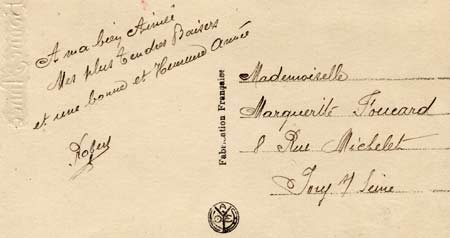 A ma bien Aimée
Mes plus tendres Baisers
et une bonne et Heureuse Année
Robert
Fabrication Française
Mademoiselle
Marguerite Foucard
8 Rue Michelet
Ivry s/ Seine